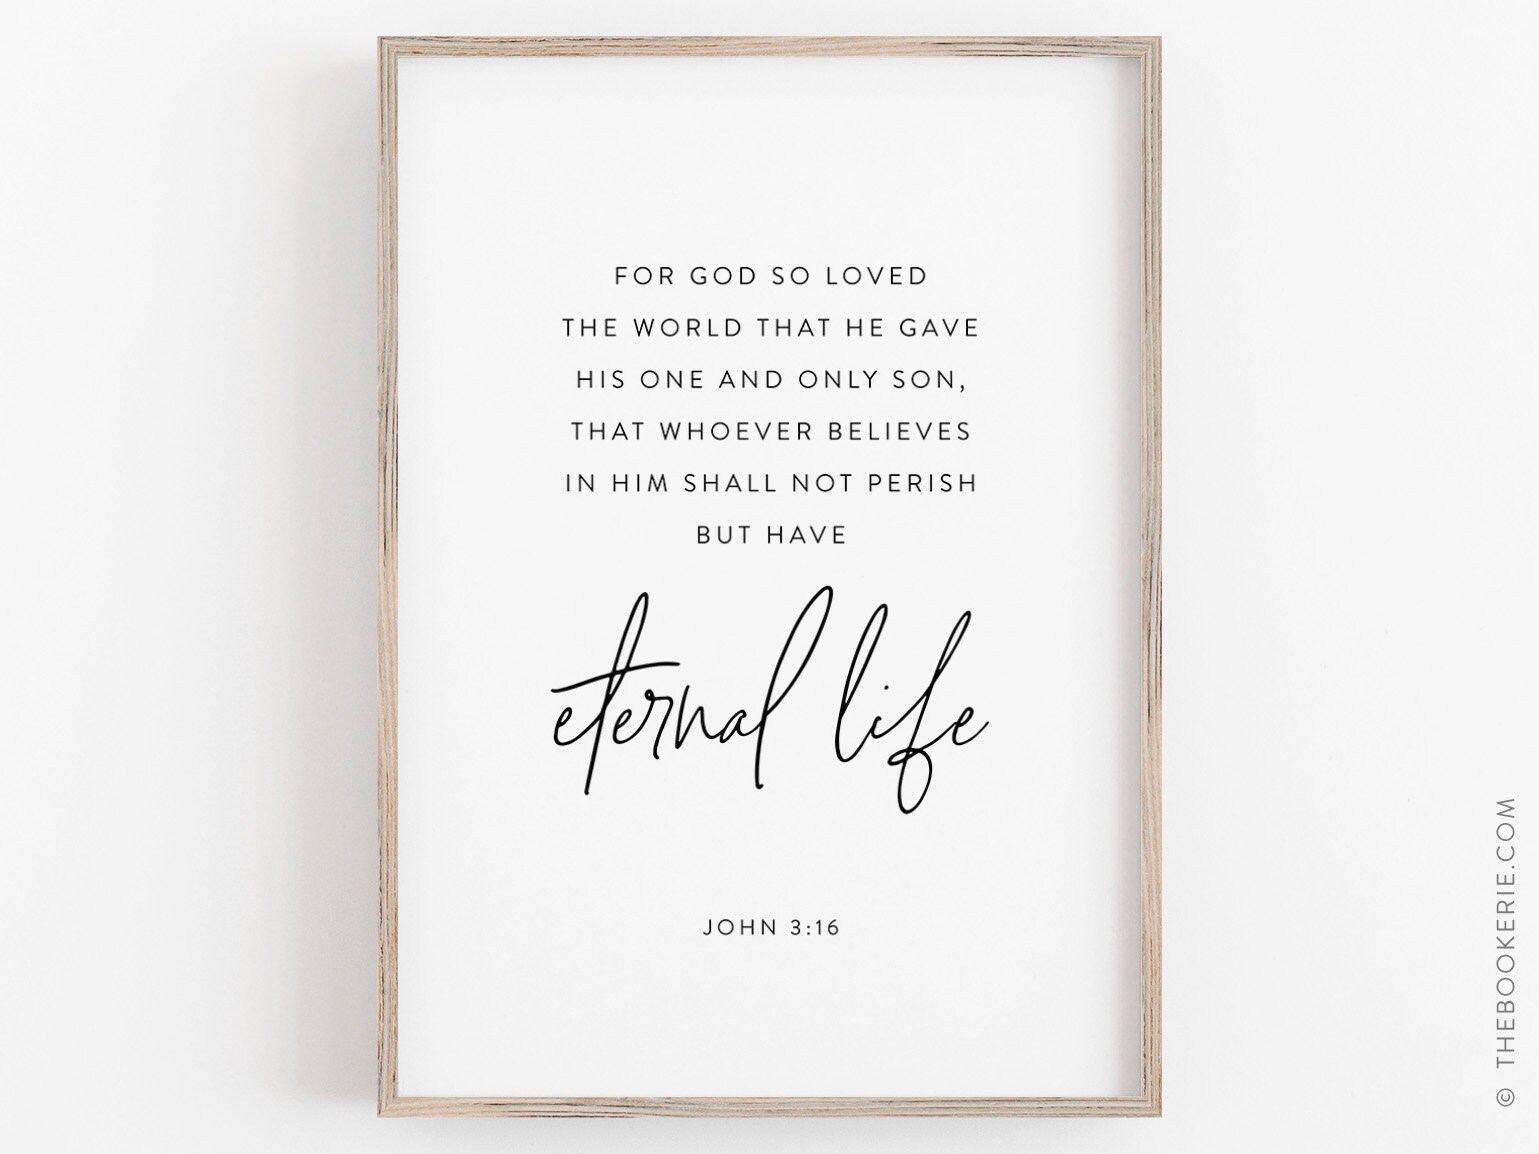 FOR GOD SO LOVED
THE WORLD THAT HE GAVE
HIS ONE AND ONLY SON,
THAT WHOEVER BELIEVES
IN HIM SHALL NOT PERISH
BUT HAVE
eternal life
JOHN 3:16
© THEBOOKERIE.COM